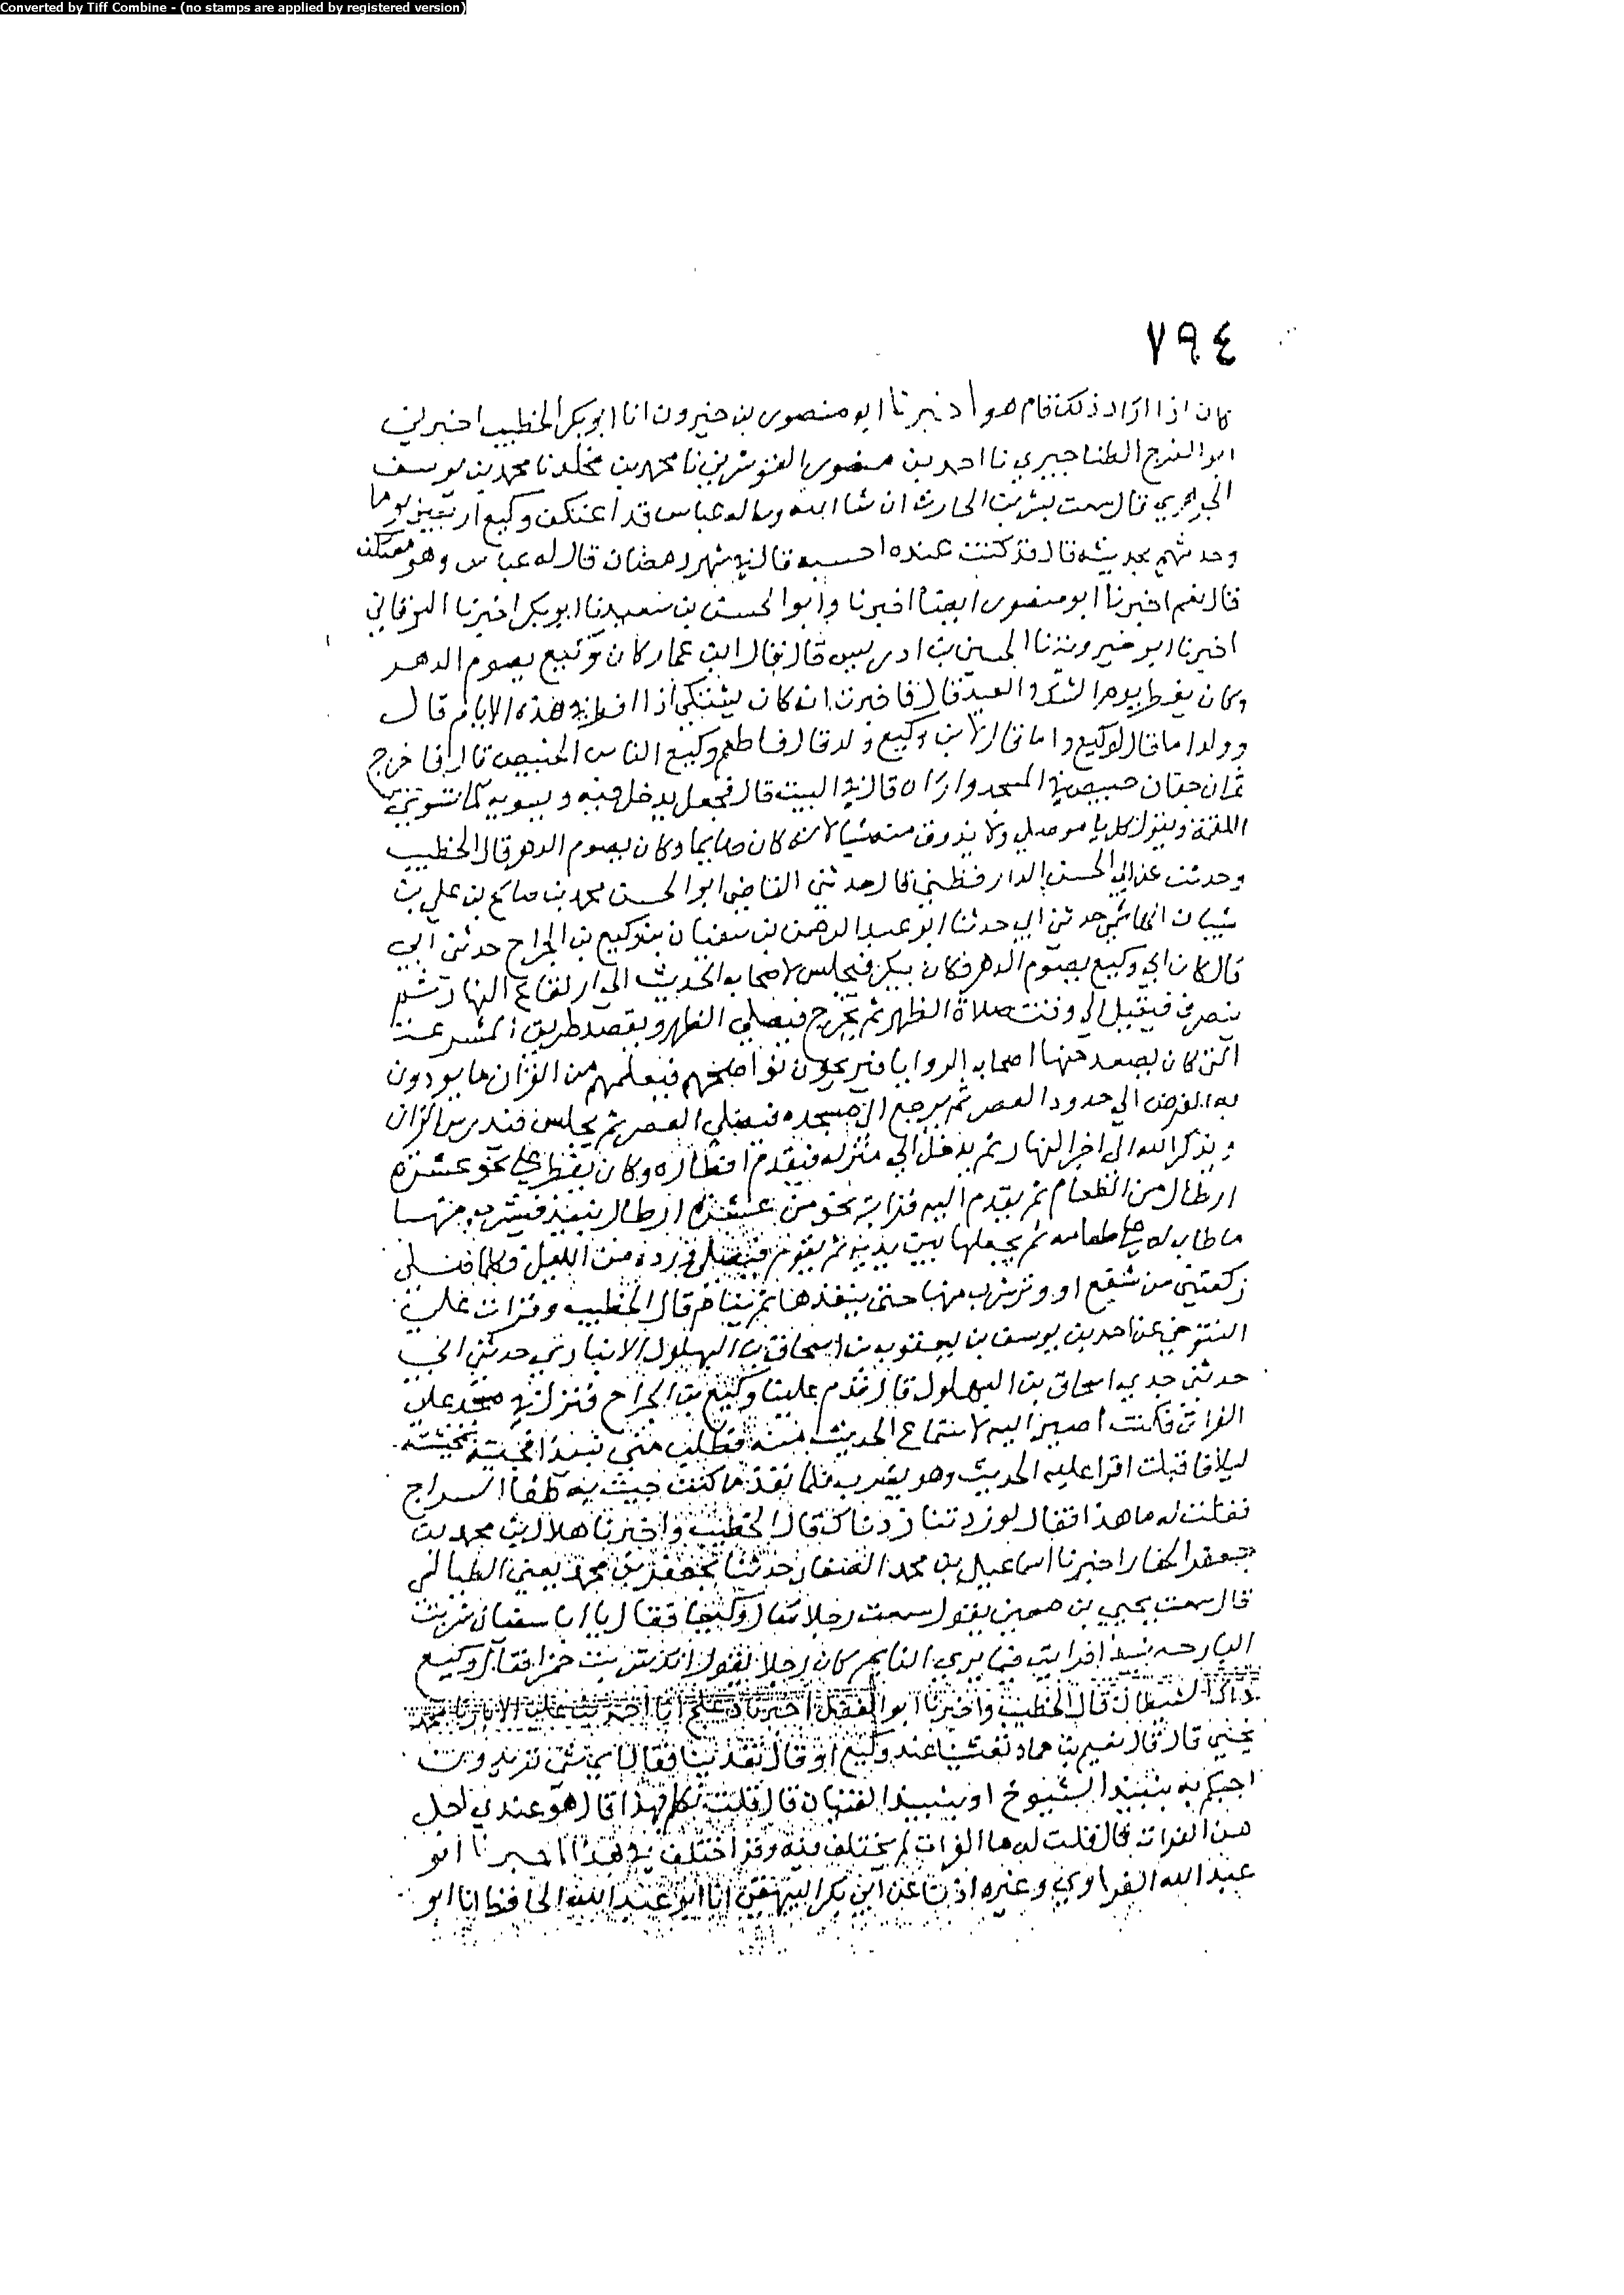 Converted by Tiff Combine - (no stamps are applied by registered version)
٧٩٤
كان اذا اراد ذلك قام هو اخبرنا ابو منصور بن خيرون انا ابو بكر الخطيب اخبرني
ابو الفرج الطناجيري نا احمد بن منصور النوشري نا محمد بن مخلد نا محمد بن يوسف
الجوهري قال سمعت بشر بن الحارث ان شا الله وساله عباس قد اعتكف وكيع اربعين يوما
وحدثهم بحديثه قال قد كنت عنده احسبه قال في شهر رمضان قال له عباس وهو معتكف
قال نعم اخبرنا ابو منصور ايضا اخبرنا وابو الحسن بن سعيد نا ابو بكر اخبرنا البرقاني
اخبرنا ابو خميرويه نا الحسين بن ادريس قال قال ابن عمار كان وكيع يصوم الدهر
وكان يفطر يوم الشك والعيد قال فاخبرت انه كان يشتكي اذا افطر في هذه الايام قال
وولد اما قال لوكيع واما قال لابن وكيع ولد قال فاطعم وكيع الناس الخبيص قال فاخرج
ثمان جفان خبيص في المسجد واراه قال في البيت قال فجعل يدخل فيه ويسويه كما تسوي
اللقمة ويقول كل يا موصلي ولا يذوق منه شيا لانه كان صايما وكان يصوم الدهر قال الخطيب
وحدثت عن ابي الحسن الدارقطني قال حدثني القاضي ابو الحسن محمد بن صالح بن علي بن
شيبان الهاشمي حدثني ابي حدثنا ابو عبد الرحمن بن سفيان بن وكيع بن الجراح حدثني ابي
قال كان ابي وكيع يصوم الدهر فكان يبكر فيجلس لاصحاب الحديث الى ارتفاع النهار ثم
ينصرف فيقيل الى وقت صلاة الظهر ثم يخرج فيصلي الظهر ويقصد طريق المشرعة
التي كان يصعد منها اصحاب الروايا فيريحون نواضحهم فيعلمهم من القران ما يودون
به الفرض الي حدود العصر ثم يرجع الى مسجده فيصلي العصر ثم يجلس فيدرس القران
ويذكر الله الى اخر النهار ثم يدخل الي منزله فيقدم افطاره وكان يفطر على نحو عشرة
ارطال من الطعام ثم يقدم اليه قرابة نحو من عشرة ارطال نبيذ فيشرب منها
ما طاب له على طعامه ثم يجعلها بين يديه ثم يقوم فيصلي ورده من الليل وكلما صلي
ركعتين من شفع او وتر شرب منها حتى ينفذها ثم ينام قال الخطيب وقرات على
التنوخي عن احمد بن يوسف بن يعقوب بن اسحاق بن البهلول الانباري حدثني ابي
حدثني جدي اسحاق بن البهلول قال قدم علينا وكيع بن الجراح فنزل في مسجد على
الفرات فكنت اصير اليه لاستماع الحديث منه فطلب مني نبيذا فجيته بمخيشته
ليلا فاقبلت اقرا عليه الحديث وهو يشرب فلما نفذ ما كنت جيت به طفا السراج
فقلت له ما هذا فقال لو زدتنا زدناك قال الخطيب واخبرنا هلال بن محمد بن
جعفر الحفار اخبرنا اسماعيل بن محمد الصفار حدثنا جعفر بن محمد يعني الطيالسي
قال سمعت يحيي بن معين يقول سمعت رجلا سال وكيعا فقال يا ابا سفيان شربت
البارحه نبيذا فرايت فيما يري النايم كان رجلا يقول انك شربت خمرا فقال وكيع
ذاك الشيطان قال الخطيب واخبرنا ابو الفضل اخبرنا دعلج انا احمد بن علي الابار نا محمد
يحيي قال قال نعيم بن حماد تعشينا عند وكيع او قال تغدينا فقال اي شي تريدون
اجيكم به بنبيذ الشيوخ او بنبيذ الفتيان قال قلت تكلم بهذا قال هو عندي احل
من الفرات قال فقلت له ما الفرات لم يختلف فيه وقد اختلف في هذا اخبرنا ابو
عبد الله الفراوي وغيره اذنا عن ابي بكر البيهقي انا ابو عبد الله الحافظ انا ابو